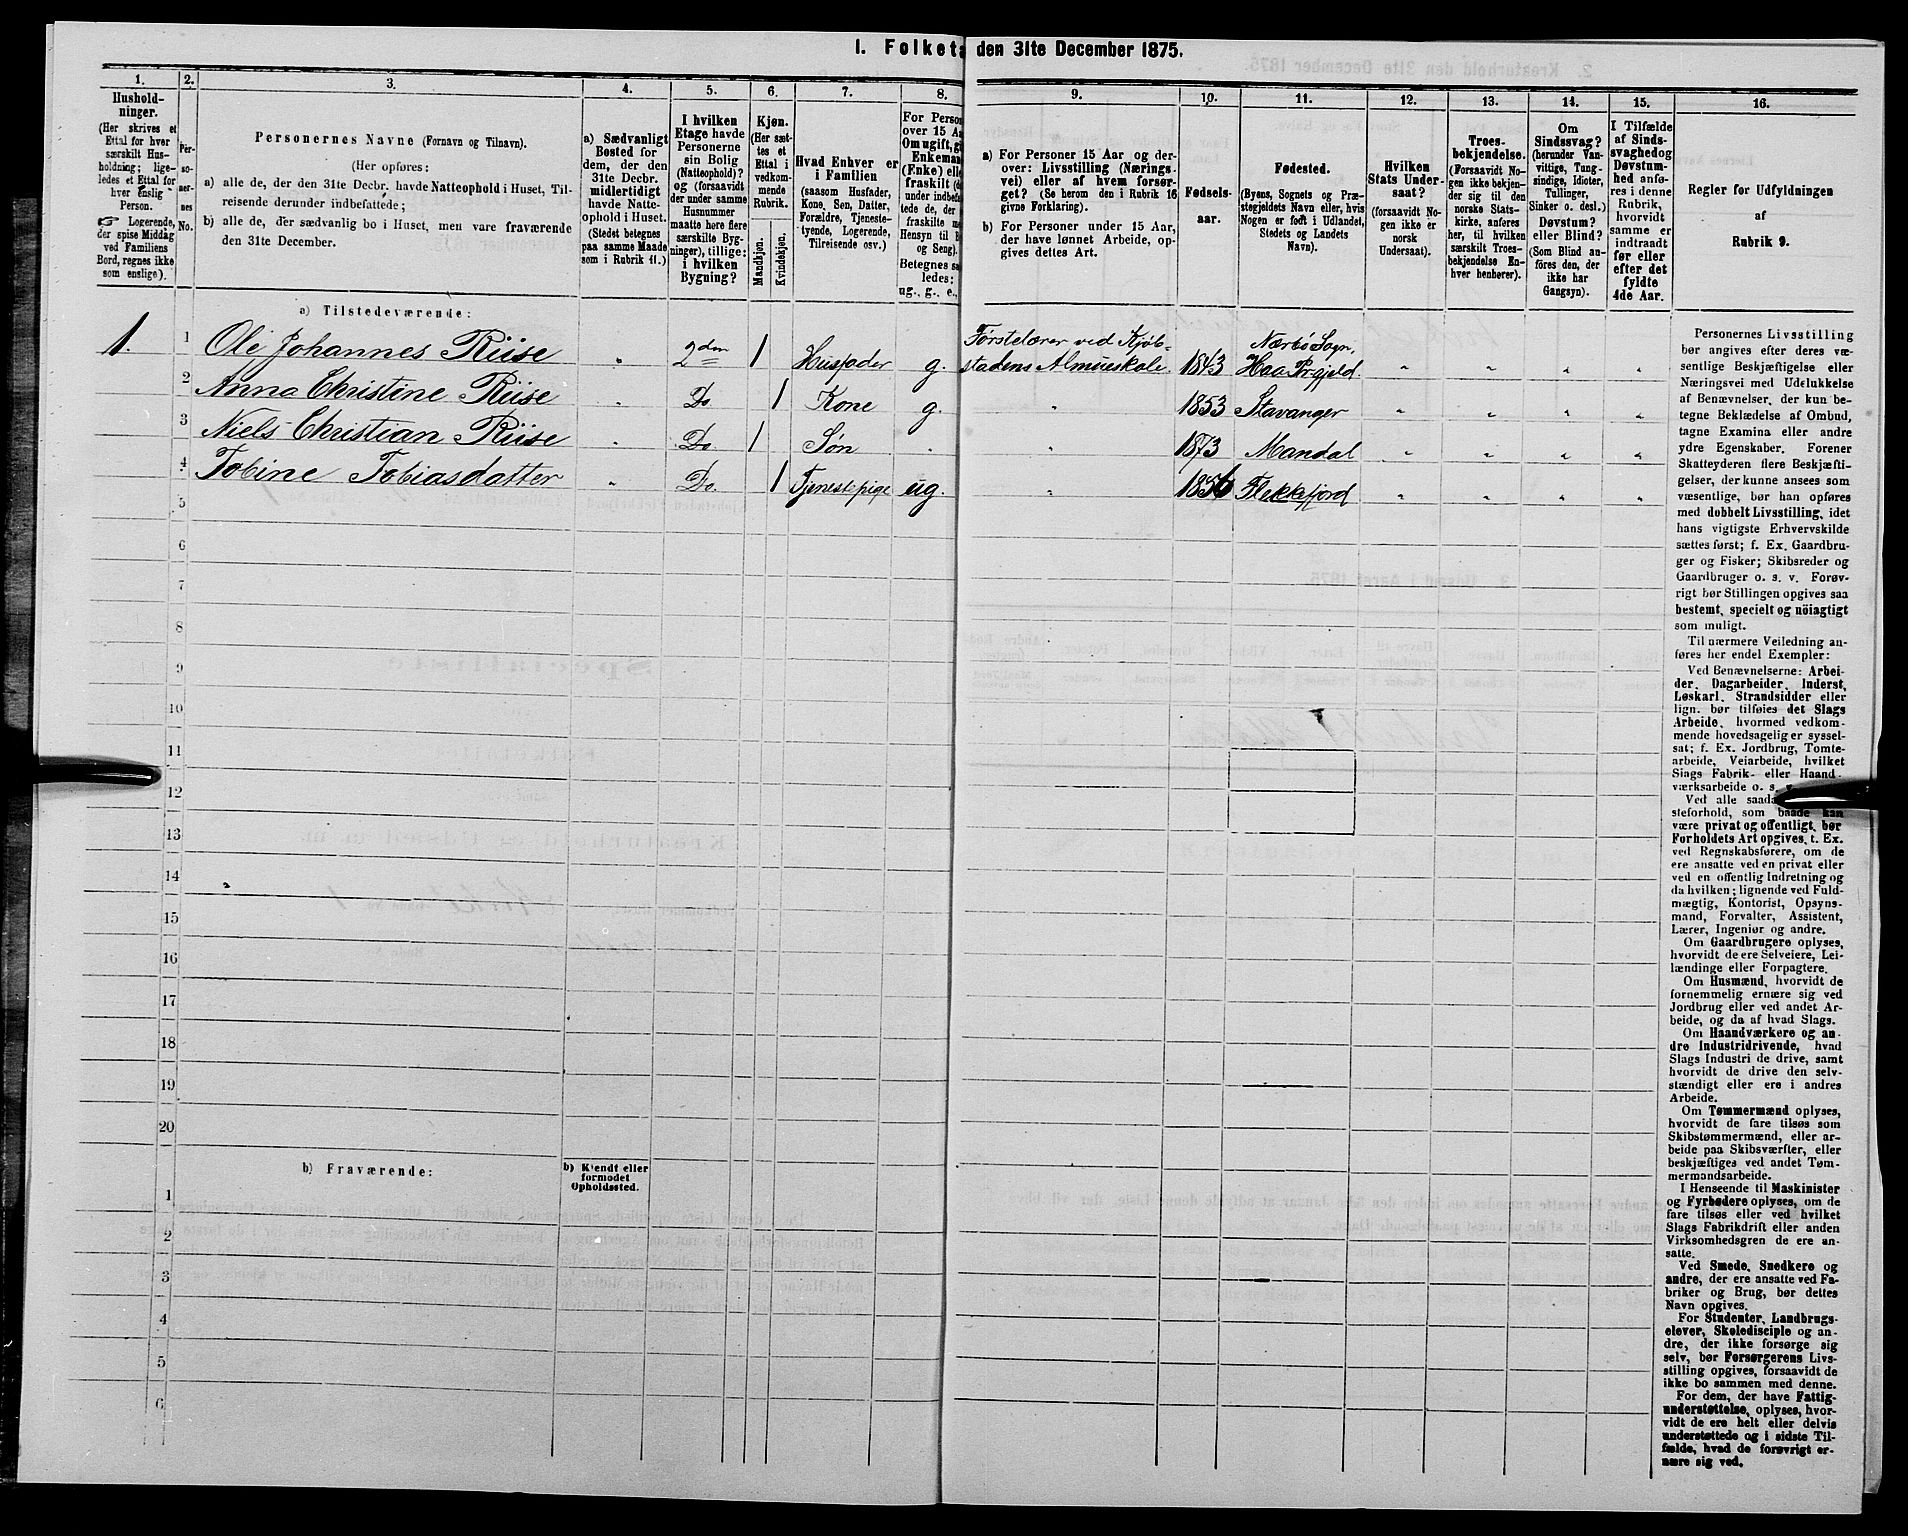 I. Folketa den 31te December 1875.
1. 2. 3. 4. 5. 6. 7. 8. 9. 10. 11. 12. 13. 14. 15. 16.
Hushold-
ninger.
(Her skrives et
Ettal for hver
særskilt Hus-
holdning; lige-
ledes et Ettal for
hver enslig
Person.
☞ Logerende,
der spise Middag
ved Familiens
Bord, regnes ikke
som enslige).
Per-
so-
ner-
nes
No.
Personernes Navne (Fornavn og Tilnavn).
(Her opføres:
a) alle de, der den 31te Decbr. havde Natteophold i Huset, Til-
reisende derunder indbefattede;
b) alle de, der sædvanlig bo i Huset, men vare fraværende
den 31te December.
a) Sædvanligt
Bosted for
dem, der den
31te Decbr.
midlertidigt
havde Natte-
ophold i Huset.
(Stedet betegnes
paa samme Maade
som i Rubrik 11.)
I hvilken
Etage havde
Personerne
sin Bolig
(Natteophold)?
og (forsaavidt
der under samme
Husnummer
maatte høre flere
særskilte Byg-
ninger), tillige:
i hvilken
Bygning?
Kjøn.
(Her sæt-
tes et
Ettal i
vedkom-
mende
Rubrik.
Mandkjøn.
Kvindekjøn.
Hvad Enhver er
i Familien
(saasom Husfader,
Kone, Søn, Datter,
Forældre, Tjeneste-
tyende, Logerende,
Tilreisende osv.)
For Person
over 15 Aa
Om ugift, gi
Enkemand
(Enke) elle
fraskilt (d
under indbef
tede de, der
fraskilte me
Hensyn til B
og Seng).
Betegnes saa
ledes:
ug., g., e.,
a) For Personer 15 Aar og der-
over: Livsstilling (Nærings-
vei) eller af hvem forsør-
get? (Se herom den i Rubrik 16
givne Forklaring).
b) For Personer under 15 Aar,
der have lønnet Arbeide, op-
gives dettes Art.
Fødsels-
aar.
Fødested.
(Byens, Sognets og Præ-
stegjeldets Navn eller, hvis
Nogen er født i Udlandet,
Stedets og Landets
Navn).
Hvilken
Stats Under-
saat?
(forsaavidt No-
gen ikke er
norsk
Undersaat).
Troes-
bekjendelse.
(Forsaavidt No-
gen ikke bekjen-
der sig til den
norske Stats-
kirke, anføres
her, til hvilken
særskilt Troes-
bekjendelse En-
hver henhører).
Om
Sindssvag?
(herunder Van-
vittige, Tung-
sindige, Idioter,
Tullinger,
Sinker o. desl.)
Døvstum?
eller Blind?
(Som Blind an-
føres den, der
ikke har
Gangsyn).
I Tilfælde
af Sinds-
svaghed og
Døvstum-
hed anfø-
res i denne
Rubrik,
hvorvidt
samme er
indtraadt
før eller
efter det
fyldte
4de Aar.
Regler for Udfyldningen
af
Rubrik 9.
a) Tilstedeværende:
1. 1 Ole Johannes Riise " 2den 1 Husfader g. Førstelærer ved Kjøb-
stadens Almueskole. 1843 Nærbø Sogn,
Haa Prgjeld. " " " "
2 Anna Christine Riise " Do 1 Kone g. " 1853 Stavanger " " " "
3 Niels Christian Riise " Do 1 Søn . " 1873 Mandal " " " "
4 Tobine Tobiasdatter " Do 1 Tjenestepige ug. " 1856 Flekkefjord " " " "
5
6
7
8
9
10
11
12
13
14
15
16
17
18
19
20
b) Fraværende:
b) Kjendt eller
formodet
Opholdssted.
1
2
3
4
5
6
Personernes Livsstilling
bør angives efter deres væ-
sentlige Beskjæftigelse eller
Næringsvei med Udelukkelse
af Benævnelser, der kun be-
tegne Beklædelse af Ombud,
tagne Examina eller andre
ydre Egenskaber. Forener
Skatteyderen flere Beskjæfti-
gelser, der kunne ansees som
væsentlige, bør han opføres
med dobbelt Livsstilling, idet
hans vigtigste Erhvervskilde
sættes først; f. Ex. Gaardbru-
ger og Fisker; Skibsreder og
Gaardbruger o. s. v. Forøv-
rigt bør Stillingen opgives saa
bestemt, specielt og nöiagtigt
som muligt.
Til nærmere Veiledning an-
føres her endel Exempler:
Ved Benævnelserne: Arbei-
der, Dagarbeider, Inderst,
Løskarl, Strandsidder eller
lign. bør tilføies det Slags
Arbeide, hvormed vedkom-
mende hovedsagelig er syssel-
sat; f. Ex. Jordbrug, Tomte-
arbeide, Veiarbeide, hvilket
Slags Fabrik- eller Haand-
værksarbeide o. s.
Ved alle saada
steforhold, som baade kan
være privat og offentligt, bør
Forholdets Art opgives, t. Ex.
ved Regnskabsførere, om de
ere ansatte ved en privat eller
ved en offentlig Indretning og
da hvilken; lignende ved Fuld-
mægtig, Kontorist, Opsyns-
mand, Forvalter, Assistent,
Lærer, Ingeniør og andre.
Om Gaardbrugere oplyses,
hvorvidt de ere Selveiere, Lei-
lændinge eller Forpagtere.
Om Husmænd, hvorvidt de
fornemmelig ernære sig ved
Jordbrug eller ved andet Ar-
beide, og da af hvad Slags.
Om Haandværkere og an-
dre Industridrivende, hvad
Slags Industri de drive, samt
hvorvidt de drive den selv-
stændigt eller ere i andres
Arbeide.
Om Tømmermænd oplyses,
hvorvidt de fare tilsøs som
Skibstømmermænd, eller ar-
beide paa Skibsværfter, eller
beskjæftiges ved andet Tøm-
mermandsarbeide.
I Henseende til Maskinister
og Fyrbødere oplyses, om de
fare tilsøs eller ved hvilket
Slags Fabrikdrift eller anden
Virksomhedsgren de ere an-
satte.
Ved Smede, Snedkere og
andre, der ere ansatte ved Fa-
briker og Brug, bør dettes
Navn opgives.
For Studenter, Landbrugs-
elever, Skoledisciple og an-
dre, der ikke forsørge sig
selv, bør Forsørgerens Livs-
stilling opgives, forsaavidt de
ikke bo sammen med denne.
For dem, der have Fattig-
understøttelse, oplyses, hvor-
vidt de ere helt eller delvis
understøttede og i sidste Til-
fælde, hvad de forøvrigt er-
nære sig ved.